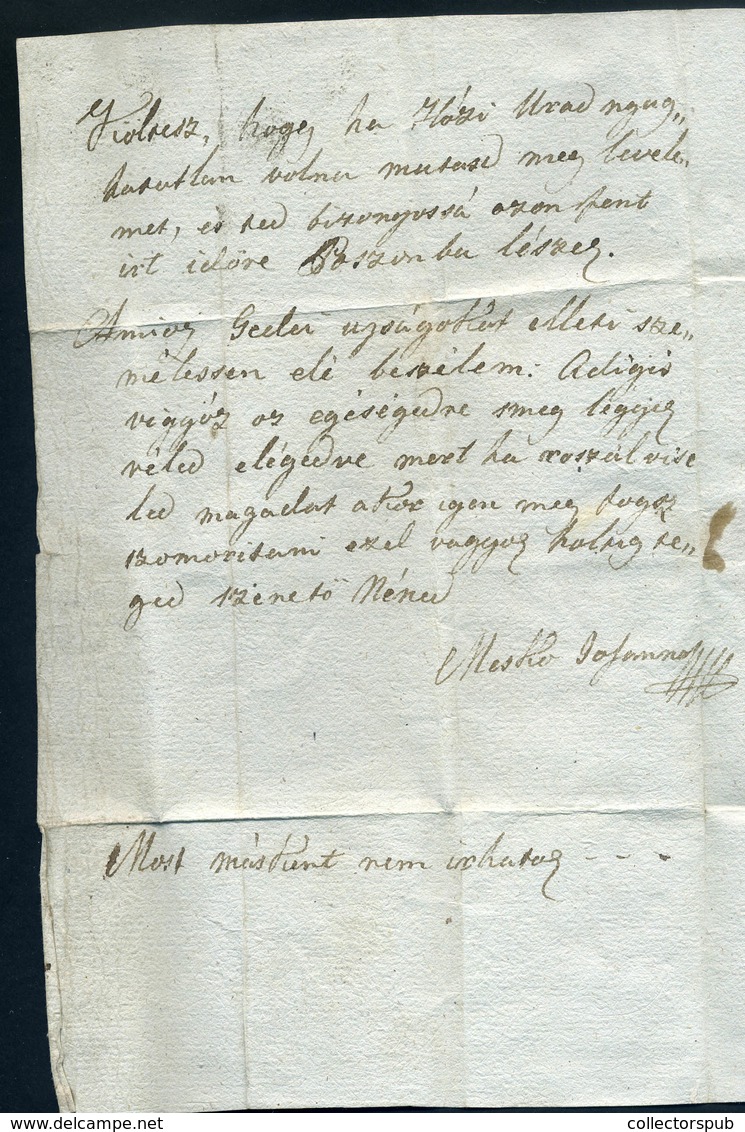 hogy ha Házi Urad nyug„
hatatlan volna mutasd meg levele„
met, és ted bizonyossá azon fent
irt időre Poszonba lészek.
Amiaz Gedei ujságokat elleti sze„
mélessen elé beszélem: Adigis
viggyáz az egéségedre smeg légyek
véled elégedve mert ha roszúl vise
led magadat akor igen meg fogsz
szomoritani ezel vagyok holtig té„
ged szerető Nénéd
Mesko Johanna
Most másként nem irhatok - - -
collectorspub